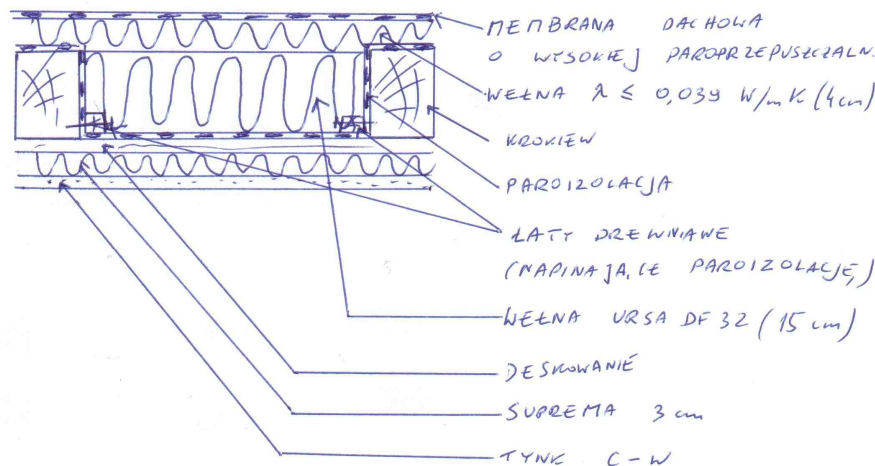 MEMBRANA DACHOWA
O WYSOKIEJ PAROPRZEPUSZCZALN.
WEŁNA λ ≤ 0,039 W/mK (4cm)
KROKIEW
PAROIZOLACJA
ŁATY DREWNIANE
(NAPINAJĄCE PAROIZOLACJĘ)
WEŁNA URSA DF 32 (15 cm)
DESKOWANIE
SUPREMA 3 cm
TYNK C-W